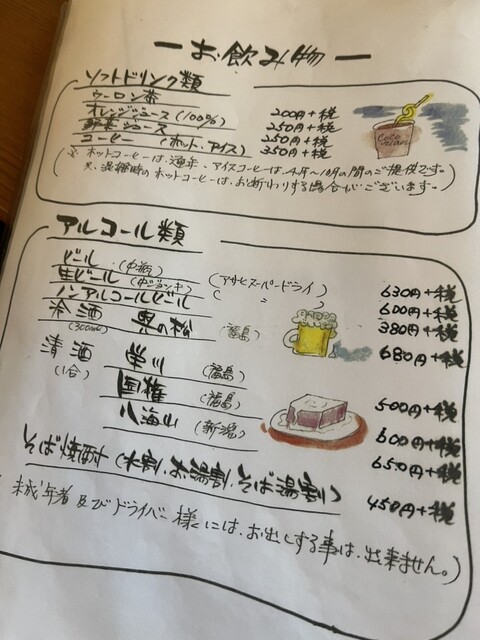 ーお飲み物ー
ソフトドリンク類
ウーロン茶 200円+税
オレンジジュース(100%) 250円+税
野菜ジュース 250円+税
コーヒー (ホット・アイス) 350円+税
(※ ホットコーヒーは通年、アイスコーヒーは4月〜10月の間のご提供です。
又、混雑時のホットコーヒーは、お断わりする場合がございます。)
アルコール類
ビール (中瓶) (アサヒスーパードライ) 630円+税
生ビール (中ジョッキ) ( 〃 ) 600円+税
ノンアルコールビール 380円+税
冷酒 奥の松 (福島) 680円+税
(300ml)
清酒 栄川 (福島) 500円+税
(1合) 国権 (福島) 600円+税
八海山 (新潟) 650円+税
そば焼酎 (水割・お湯割・そば湯割) 450円+税
(未成年者及びドライバー様には、お出しする事は、出来ません。)